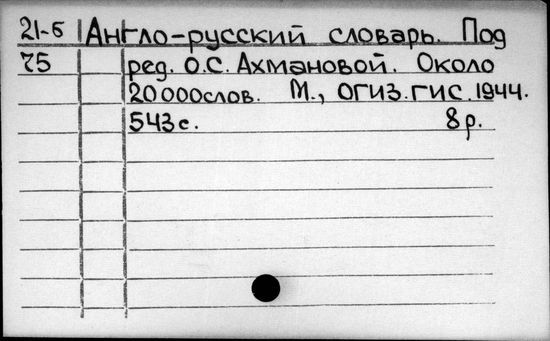 21-5 Англо-русский словарь. Под
75 ред. О.С. Ахмановой. Около
20000слов. М., ОГИЗ.ГИС.1944.
543с. 8р.